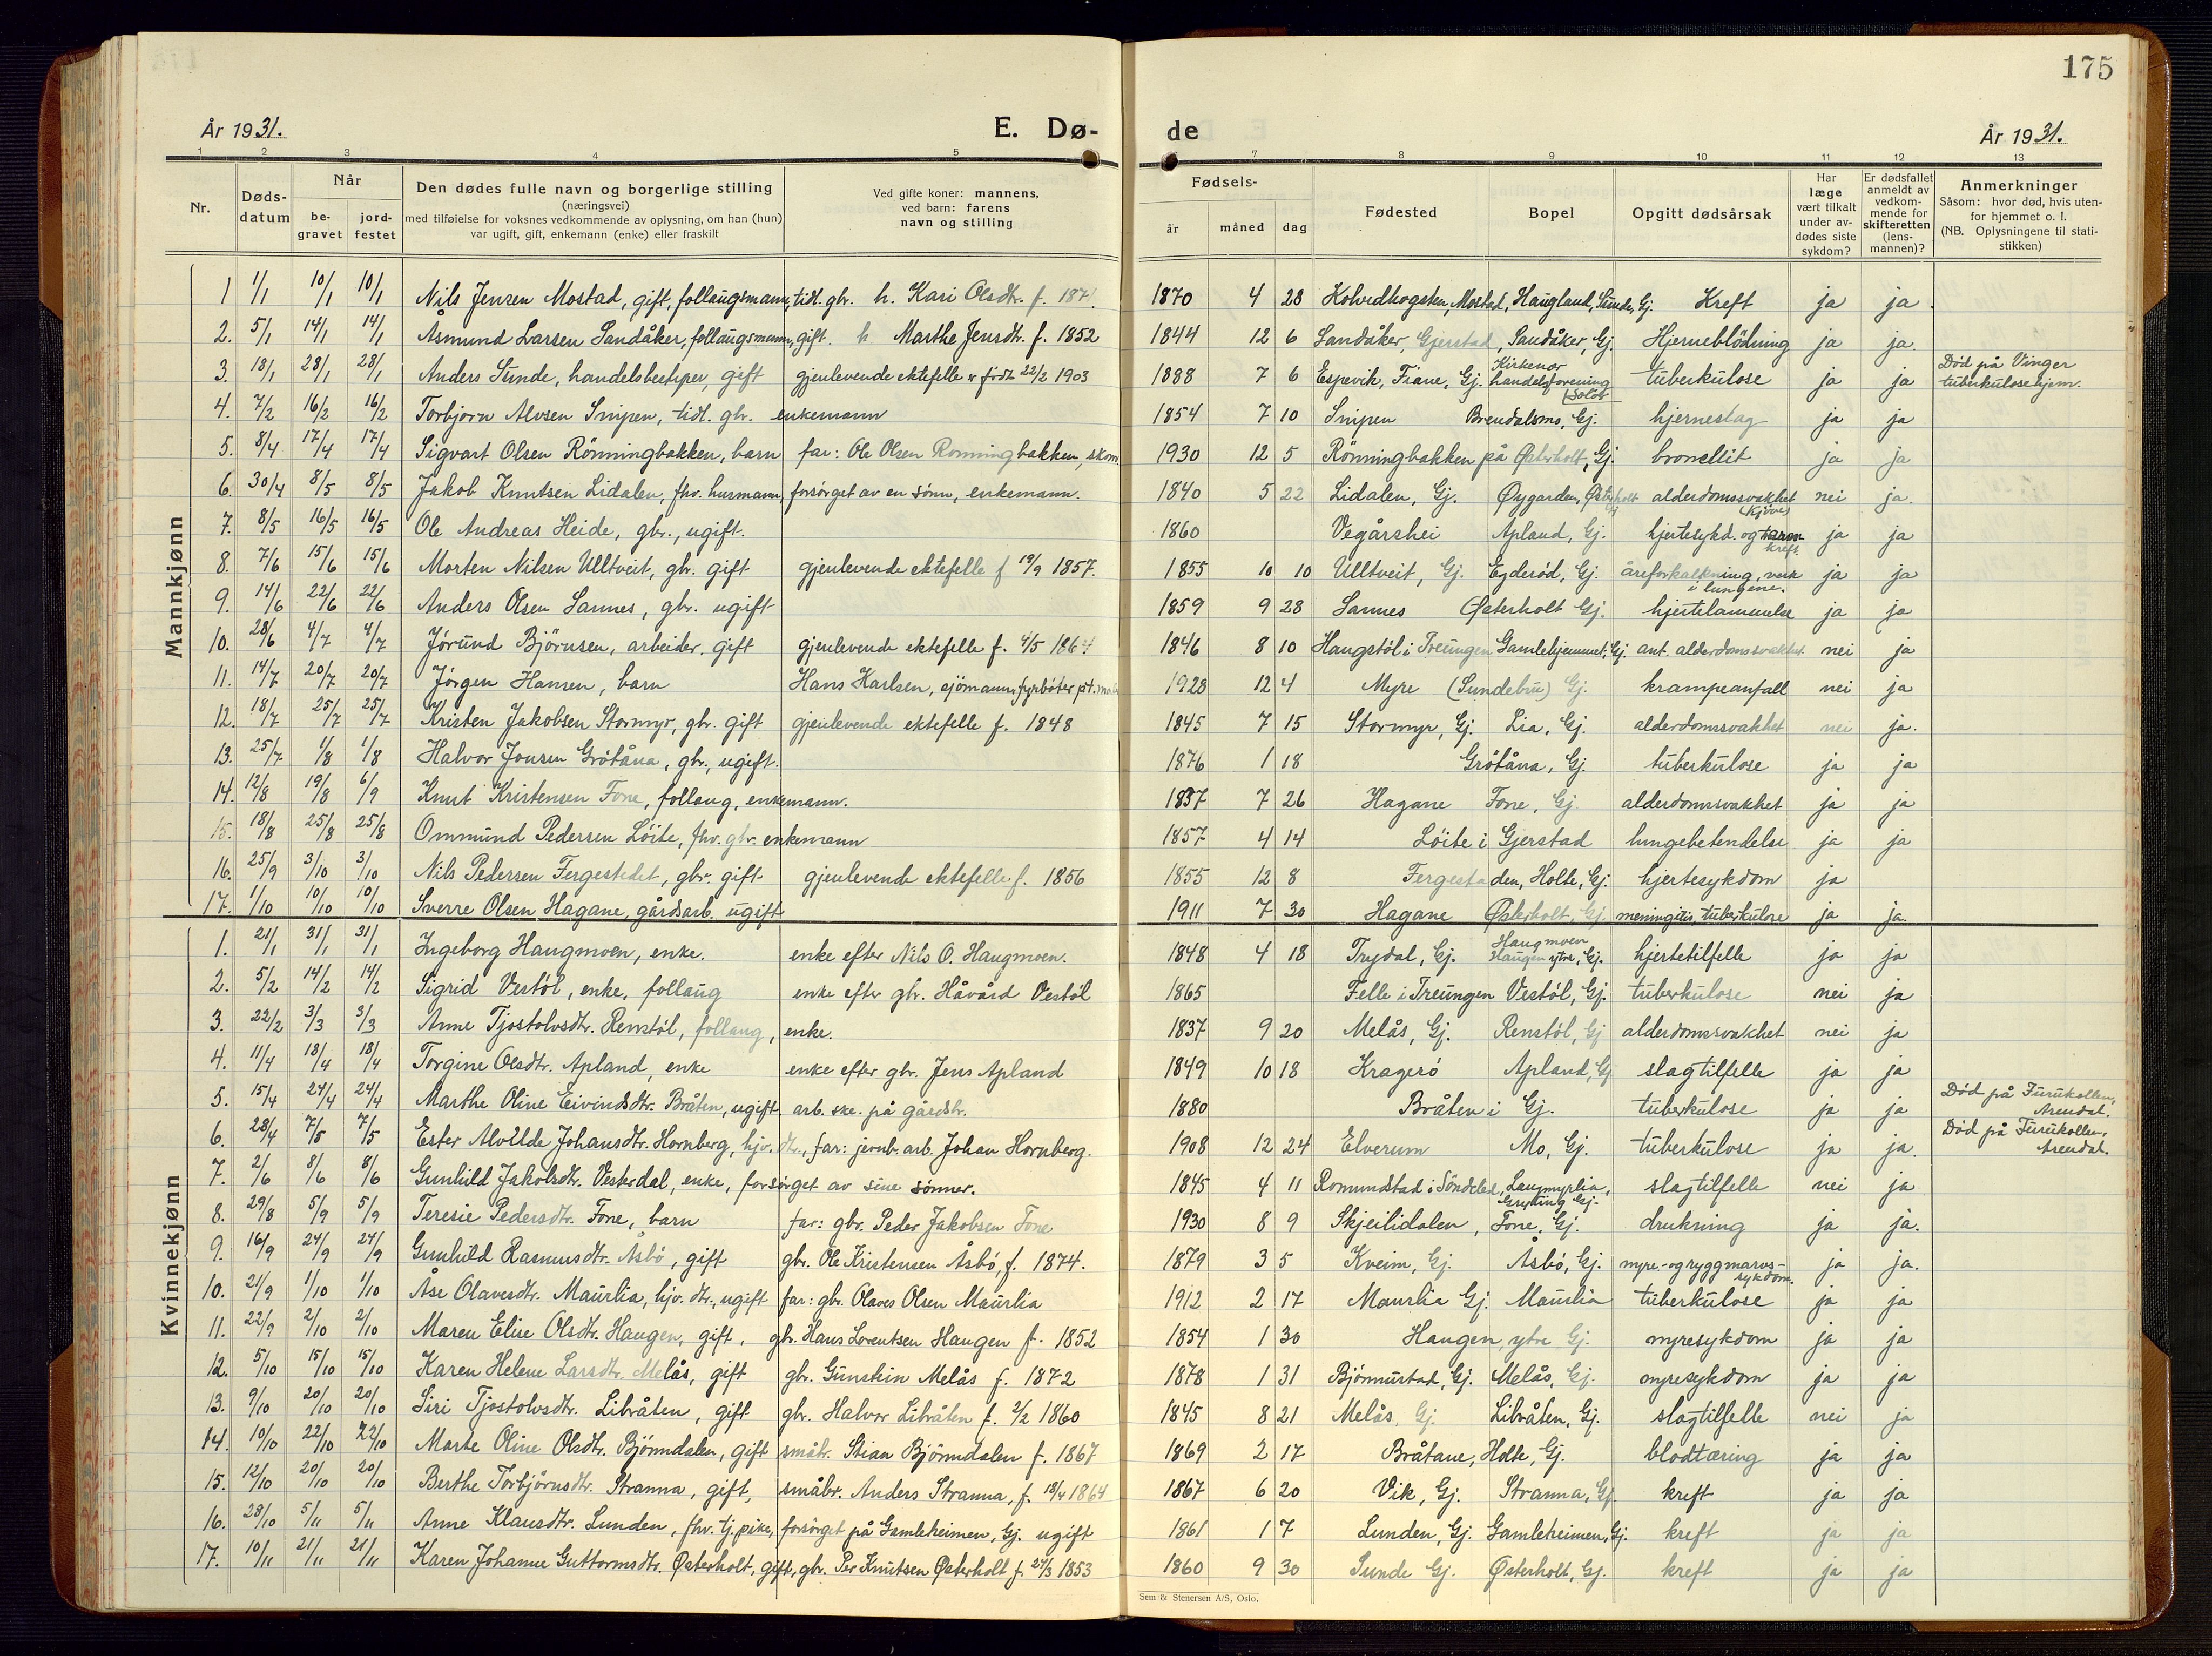 175
År 1931.
E. Dø-
de
År 1931.
1 2 3 4 5 6 7 8 9 10 11 12 13
Nr.
Døds-
datum
Når
be-
gravet
jord-
festet
Den dødes fulle navn og borgerlige stilling
(næringsvei)
med tilføielse for voksnes vedkommende av oplysning, om han (hun)
var ugift, gift, enkemann (enke) eller fraskilt
Ved gifte koner: mannens,
ved barn: farens
navn og stilling
Fødsels-
år
måned
dag
Fødested
Bopel
Opgitt dødsårsak
Har
læge
vært tilkalt
under av-
dødes siste
sykdom?
Er dødsfallet
anmeldt av
vedkom-
mende for
skifteretten
(lens-
mannen)?
Anmerkninger
Såsom: hvor død, hvis uten-
for hjemmet o. l.
(NB. Oplysningene til stati-
stikken)
Mannkjønn
1 1/1 10/1 10/1 Nils Jensen Mostad, gift, follaugsmann, tidl. gbr. h. Kari Olsdtr. f. 1870 4 28 Kolvedhogsten, Mostad, Haugland, Sunde, Gj. Kreft ja ja.
2. 5/1 14/1 14/1 Åsmund Larsen Sandåker, follaugsmann, gift. h Marthe Jensdtr. f. 1852 1844 12 6 Sandåker, Gjerstad, Sandåker, Gj. Hjerneblödning ja ja.
3. 18/1 28/1 28/1 Anders Sunde, handelsbestyrer, gift gjenlevende ektefelle er född 22/2 1903 1888 7 6 Espevik, Fiane, Gj. Kirkenær handelsforening Solör tuberkulose ja ja Död på Vinger tuberkulosehjem.
4. 7/2 16/2 16/2 Torbjørn Alvsen Snipen, tidl. gbr. enkemann 1854 7 10 Snipen Brendalsmo, Gj. hjerneslag ja ja
5. 8/4 17/4 17/4 Sigvart Olsen Rönningbakken, barn far: Ole Olsen Ronningbakken, skom 1930 12 5 Rönningbakken på Østerholt, Gj. bronkit ja ja
6. 30/4 8/5 8/5 Jakob Knutsen Lidalen, fhv. husmann, forsörget av en sönn, enkemann. 1840 5 22 Lidalen, Gj. Øygarden, Østerholt Gj alderdomssvakhet nei ja.
7. 8/5 16/5 16/5 Ole Andreas Heide, gbr., ugift. 1860 Vegårshei Apland, Gj. hjertesykd. og kreft ja ja
8. 7/6 15/6 15/6 Morten Nilsen Ulltveit, gbr. gift gjenlevende ektefelle f 19/9 1857. 1855 10 10 Ulltveit, Gj. Egderöd, Gj. åreforkalkning, verk i lungene. ja ja
9. 14/6 22/6 22/6 Anders Olsen Sannes, gbr. ugift 1859 9 28 Sannes Østerholt Gj. hjertelammelse ja ja
10. 28/6 4/7 4/7 Jörund Björnsen, arbeider, gift gjenlevende ektefelle f. 4/5 1864 1846 8 10 Haugstöl i Treungen Gamlehjemmet, Gj. ant. alderdomssvakhet nei ja
11. 14/7 20/7 20/7 Jörgen Hansen, barn Hans Karlsen, sjömann, fyrböter pt. 1928 12 4 Myre (Sundebru) Gj. krampeanfall nei ja
12. 18/7 25/7 25/7 Kristen Jakobsen Stormyr, gbr. gift gjenlevende ektefelle f. 1848 1845 7 15 Stormyr, Gj. Lia, Gj. alderdomssvakhet nei ja.
13. 25/7 1/8 1/8 Halvor Jonsen Grötåna, gbr., ugift. 1876 1 18 Grötåna, Gj. tuberkulose ja ja
14. 12/8 19/8 6/9 Knut Kristensen Fone, follaug, enkemann. 1837 7 26 Hagane Fone, Gj. alderdomssvakhet ja ja
15. 18/8 25/8 25/8 Ommund Pedersen Löite, fhv. gbr. enkemann 1857 4 14 Löite i Gjerstad lungebetendelse ja ja
16. 25/9 3/10 3/10 Nils Pedersen Fergestedet, gbr. gift gjenlevende ektefelle f. 1856 1855 12 8 Fergestaden, Holte, Gj. hjertesykdom ja
17. 1/10 10/10 10/10 Sverre Olsen Hagane, gårdsarb. ugift 1911 7 30 Hagane Østerholt, Gj. meningitis, tuberkulose ja ja.
Kvinnekjønn
1. 21/1 31/1 31/1 Ingeborg Haugmoen, enke. enke efter Nils O. Haugmoen. 1848 4 18 Trydal, Gj. Haugmoen Haugen ytre, Gj. hjertetilfelle ja ja
2. 5/2 14/2 14/2 Sigrid Vestöl, enke, follaug enke efter gbr. Håvård Vestöl 1865 Felle i Treungen Vestöl, Gj. tuberkulose nei ja
3. 22/2 3/3 3/3 Anne Tjostolvsdtr. Renstöl, follaug, enke. 1837 9 20 Melås, Gj. Renstöl, Gj alderdomssvakhet nei ja
4. 11/4 18/4 18/4 Torgine Olsdtr. Apland, enke enke efter gbr. Jens Apland 1849 10 18 Kragerö Apland, Gj slagtilfelle ja ja
5. 15/4 24/4 24/4 Marthe Oline Eivindsdtr. Bråten, ugift arb. ske. på gårdsbr. 1880 Bråten i Gj. tuberkulose ja ja Död på Furukollen, Arendal.
6. 28/4 7/5 7/5 Ester Alvilde Johansdtr. Hornberg, hjv. dtr., far: jernb. arb. Johan Hornberg. 1908 12 24 Elverum Mo, Gj. tuberkulose ja ja. Död på Furukollen, Arendal.
7. 2/6 8/6 8/6 Gunhild Jakobsdtr. Vesterdal, enke, forsörget av sine sönner. 1845 4 11 Romundstad i Söndeled, Laugmyrlia, Gryting Gj. slagtilfelle nei ja
8. 29/8 5/9 5/9 Teresie Pedersdtr. Fone, barn far: gbr. Peder Jakobsen Fone 1930 8 9 Skjeilidalen, Fone, Gj. drukning ja ja.
9. 16/9 24/9 24/9 Gunhild Rasmusdtr. Åsbö, gift gbr. Ole Kristensen Åsbö, f. 1874. 1879 3 5 Kveim, Gj. Åsbö, Gj. nyre- og ryggmarvs- sykdom. ja ja.
10. 21/9 1/10 1/10 Åse Olavesdtr. Maurlia, hjv. dtr., ugift far: gbr. Olaves Olsen Maurlia 1912 2 17 Maurlia Gj. Maurlia tuberkulose ja ja
11. 22/9 2/10 2/10 Maren Elise Olsdtr. Haugen, gift, gbr. Hans Lorentsen Haugen f. 1852 1854 1 30 Haugen, ytre Gj. nyresykdom ja ja
12. 5/10 15/10 15/10 Karen Helene Larsdtr. Melås, gift gbr. Gunstein Melås f. 1872 1878 1 31 Björnnustad, Gj. Melås, Gj. nyresykdom ja ja
13. 9/10 20/10 20/10 Siri Tjostolvsdtr. Libråten, gift gbr. Halvor Libråten f. 2/2 1860 1845 8 21 Melås, Gj. Libråten, Gj. slagtilfelle nei ja
14. 10/10 22/10 22/10 Marte Oline Olsdtr. Björndalen, gift småbr. Stian Björndalen f. 1867 1869 2 17 Bråtane, Holte, Gj. blodtæring ja ja
15. 12/10 20/10 20/10 Berthe Torbjörnsdtr. Stranna, gift, småbr. Anders Stranna, f. 18/4 1864 1867 6 20 Vik, Gj. Stranna, Gj. kreft ja ja
16. 28/10 5/11 5/11 Anne Klausdtr. Lunden, fhv. tj. pike, forsörget på Gamleheimen, Gj. ugift 1861 1 7 Lunden, Gj. Gamleheimen, Gj. kreft ja ja
17. 10/11 21/11 21/11 Karen Johanne Guttormsdtr. Østerholt, gift, gbr. Per Knutsen Østerholt f. 24/3 1853 1860 9 30 Sunde Gj. Østerholt, Gj. kreft ja ja
Sem & Stenersen A/S, Oslo.